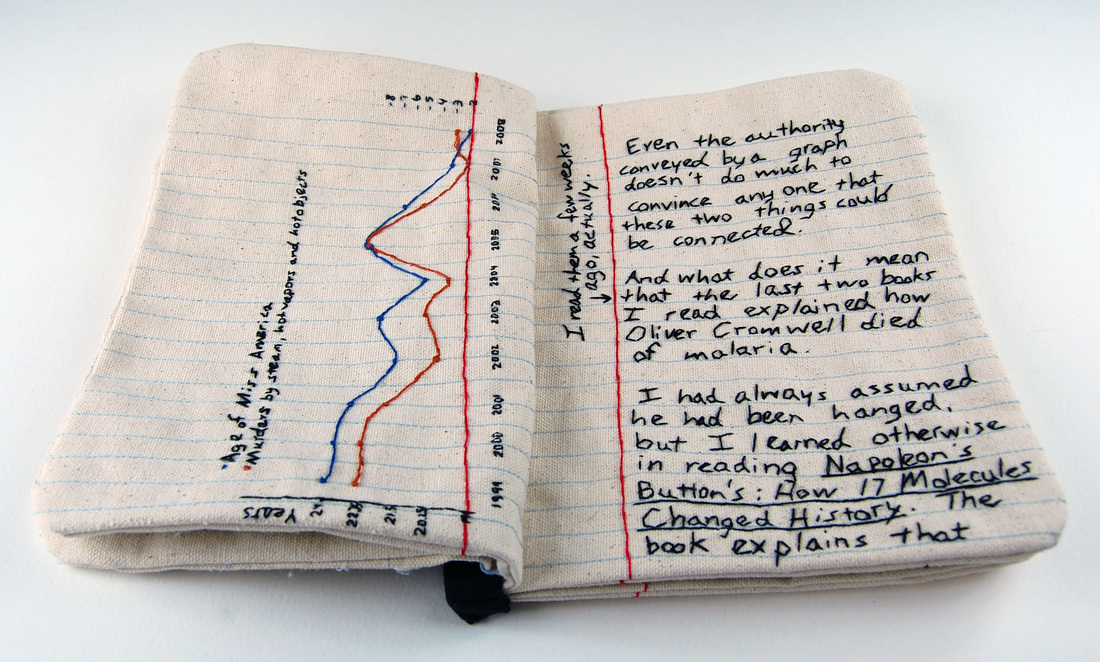 Age of Miss America
Murders by steam, hot vapors and hot objects
Years
24
-8
-7
-6
-5
-4
-3
2
1999
2000
2001
2002
2003
2004
2005
2007
2008
I read them a few weeks
ago, actually.
Even the authority
conveyed by a graph
doesn't do much to
convince any one that
these two things could
be connected.
And what does it mean
that the last two books
I read explained how
Oliver Cromwell died
of malaria.
I had always assumed
he had been hanged,
but I learned otherwise
in reading Napoleon's
Button's: How 17 Molecules
Changed History. The
book explains that